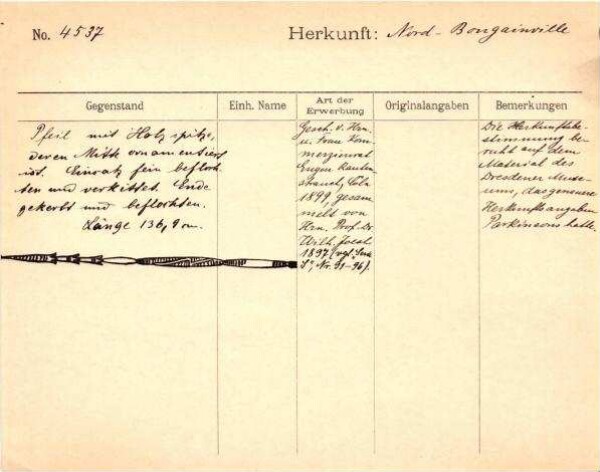 No. 4537
Herkunft: Nord-Bougainville
Gegenstand
Einh. Name
Art der
Erwerbung
Originalangaben
Bemerkungen
Pfeil mit Holzspitze,
deren Mitte ornamentiert
ist. Einsatz fein befloch-
ten und verkittet. Ende
gekerbt und beflochten.
Länge 136,9 cm.
Gesch. v. Hrn.
u. Frau Kom-
merzienrat
Eugen Rauten-
strauch, Cöln
1899, gesam-
melt von
Hrn. Prof. Dr.
Wilh. Joest
1897 (vgl.
Nr. 91-96).
Die Herkunftsbe-
stimmung be-
ruht auf dem
Material des
Dresdener Muse-
ums, das genaue
Herkunftsangaben
Parkinsons hatte.